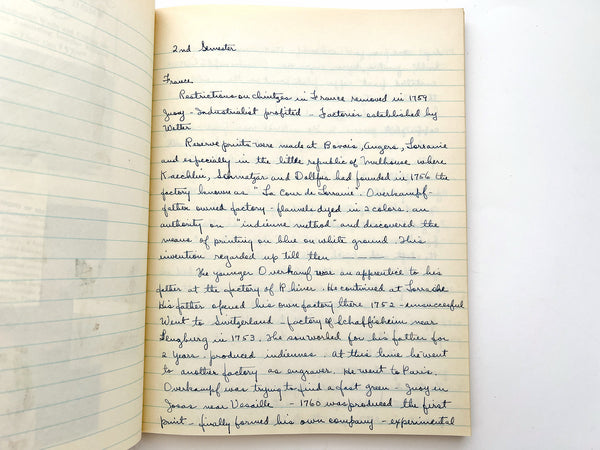 2nd Semester
France
Restrictions on chintzes in France removed in 1759
Juoy - Industrialist profited - Factories established by
Wetter
Reserve prints were made at Bovais, Angers, Lorraine
and especially in the little republic of Mulhouse where
Kaechlin, Schmetzar and Dollfus had founded in 1756 the
factory known as "La Cour de Lorraine". Overkampf-
father owned factory - flannels dyed in 2 colors. an
authority on "indienne method" and discovered the
means of printing on blue on white ground. This
invention regarded up till then
The younger Overkamf was an apprentice to his
father at the factory of R. hiner. He continued at Lorrache
His father opened his own factory there 1752 - unsuccessful
Went to Switzerland - factory of Schaffisheim near
Lengburg in 1753. The son worked for his father for
2 years. produced indiennes. At this time he went
to another factory as engraver. He went to Paris.
Overkampf was trying to find a fast green - Juoy in
Josas near Vesaille - 1760 was produced the first
print - finally formed his own company - experimental